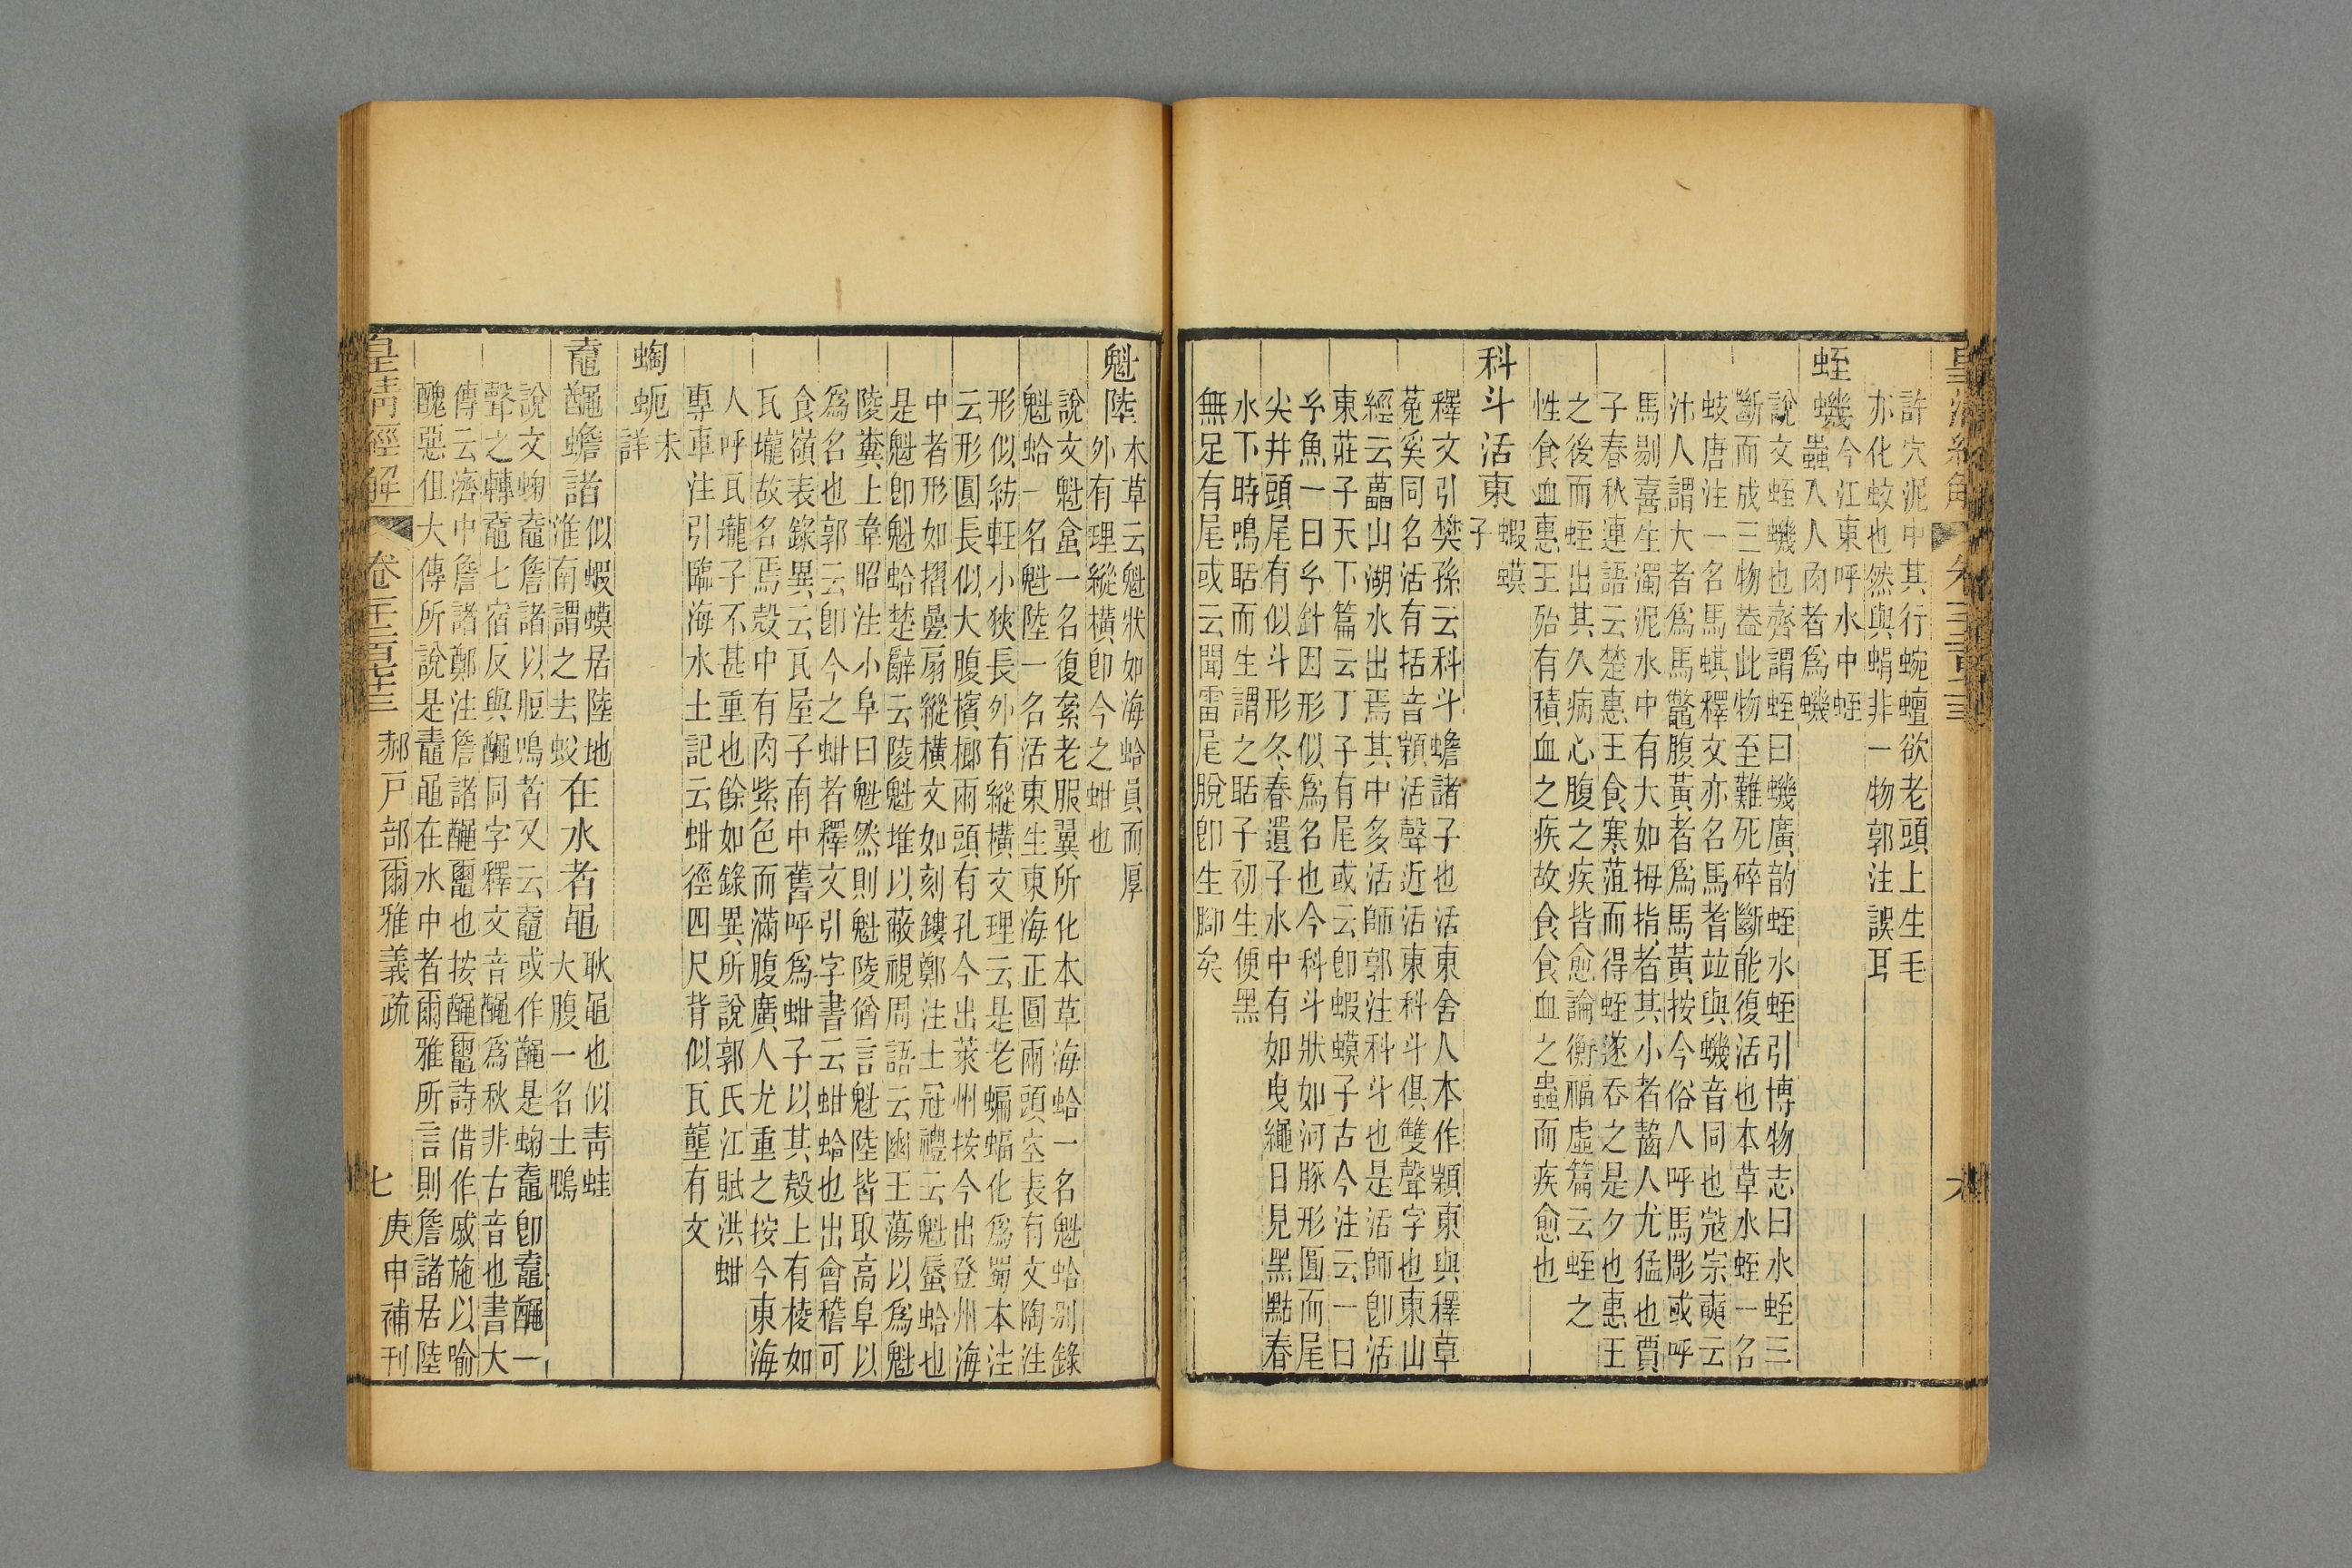 許穴泥中其行蜿蟺欲老頭上生毛
亦化蚊也然與蜎非一物郭注誤耳
蛭蟣今江東呼水中蛭
蟲入人肉者爲蟣
說文蛭蟣也齊謂蛭曰蟣廣韵蛭水蛭引博物志曰水蛭三
斷而成三物葢此物至難死碎斷能復活也本草水蛭一名
蚑唐注一名馬蜞釋文亦名馬耆竝與蟣音同也寇宗奭云
汴人謂大者爲馬鼈腹黃者爲馬黃按今俗人呼馬彫或呼
馬剔喜生濁泥水中有大如拇指者其小者齧人尤猛也賈
子春秋連語云楚惠王食寒菹而得蛭遂吞之是夕也惠王
之後而蛭出其久病心腹之疾皆愈論衡福虛篇云蛭之
性食血惠王殆有積血之疾故食食血之蟲而疾愈也
科斗活東蝦蟆
子
釋文引樊孫云科斗蟾諸子也活東舍人本作顆東與釋草
菟奚同名活有括音顆活聲近活東科斗俱雙聲字也東山
經云藟山湖水出焉其中多活師郭注科斗也是活師卽活
東莊子天下篇云丁子有尾或云卽蝦蟆子古今注云一曰
𤣥魚一曰𤣥針因形似爲名也今科斗狀如河豚形圓而尾
尖并頭尾有似斗形冬春遺子水中有如曳繩日見黑點春
水下時鳴聒而生謂之聒子初生便黑
無足有尾或云聞雷尾脫卽生腳矣
魁陸本草云魁狀如海蛤員而厚
外有理縱橫卽今之蚶也
說文魁蛤一名復絫老服翼所化本草海蛤一名魁蛤別錄
魁蛤一名魁陸一名活東生東海正圓兩頭空表有文陶注
形似紡軖小狹長外有縱橫文理云是老蝙蝠化爲蜀本注
云形圓長似大腹檳榔兩頭有孔今出萊州按今出登州海
中者形如摺疊扇縱橫文如刻鏤鄭注士冠禮云魁蜃蛤也
是魁卽魁蛤楚辭云陵魁堆以蔽視周語云幽王蕩以爲魁
陵糞上韋昭注小阜曰魁然則魁陵猶言魁陸皆取高阜以
爲名也郭云卽今之蚶者釋文引字書云蚶蛤也出會稽可
食嶺表錄異云瓦屋子南中舊呼爲蚶子以其殼上有棱如
瓦壠故名焉殼中有肉紫色而滿腹廣人尤重之按今東海
人呼瓦壠子不甚重也餘如錄異所說郭氏江賦洪蚶
專車注引臨海水土記云蚶徑四尺背似瓦壟有文
蜪蚅未
詳
鼁𪓰蟾諸似蝦蟆居陸地
淮南謂之去蚥在水者黽耿黽也似青蛙
大腹一名土鴨
說文蜠鼁詹諸以脰鳴者又云鼀或作𪓰是蜠鼁卽鼁𪓰一
聲之轉鼀七宿反與𪓰同字釋文音𪓰爲秋非古音也書大
傳云濟中詹諸鄭注詹諸𪓰𪓿也按𪓰𪓿詩借作戚施以喻
醜惡但大傳所說是鼃黽在水中者爾雅所言則詹諸居陸
皇清經解 卷一千二百七十三 郝戶部爾雅義疏 七 庚申補刊